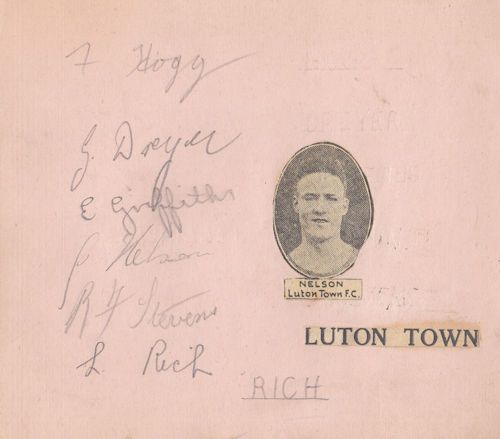 F Hogg
G. Dreyer
E Griffiths
J Nelson
R F Stevens
L. Rich
NELSON
Luton Town F.C.
LUTON TOWN
RICH